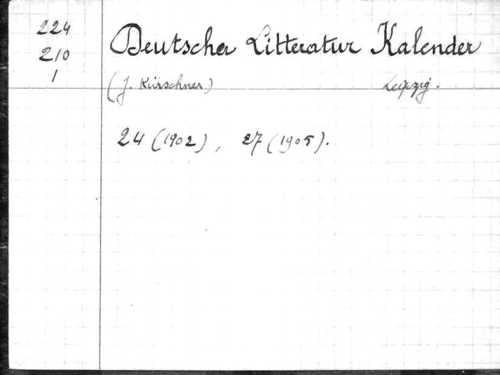 224
210
1
Deutscher Litteratur Kalender
(J. Kürschner) Leipzig.
24 (1902), 27 (1905).